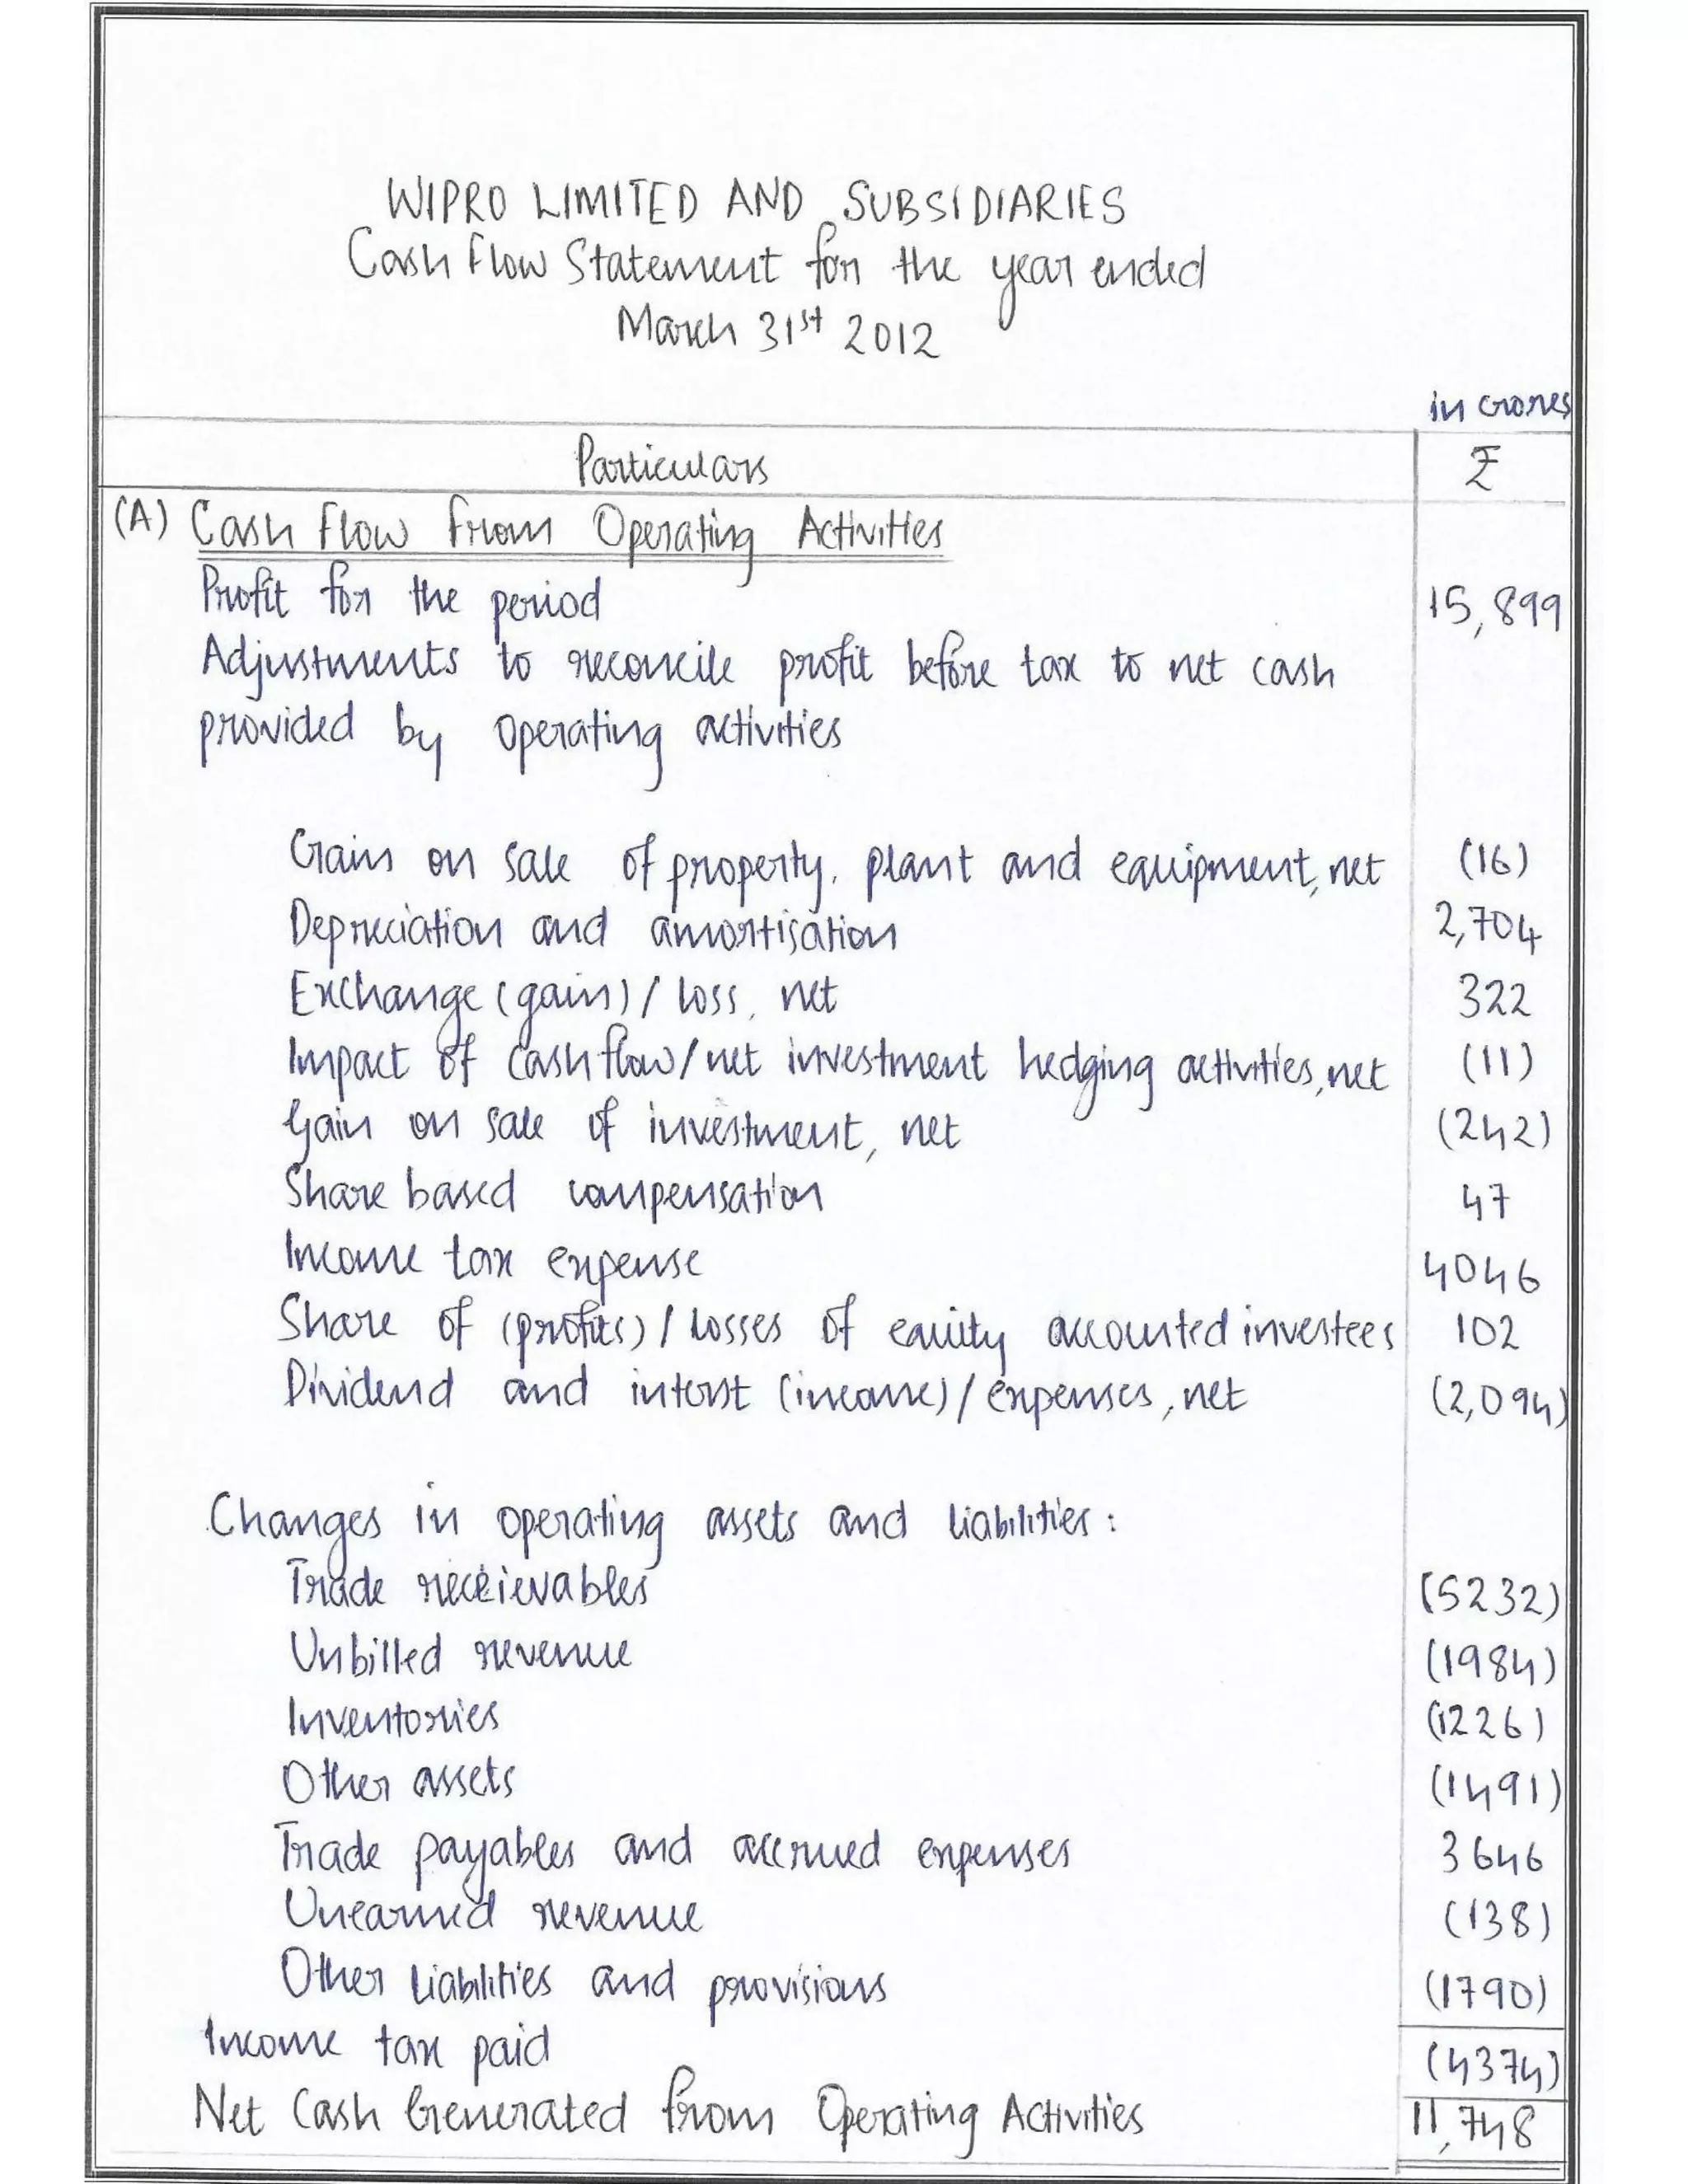 WIPRO LIMITED AND SUBSIDIARIES
Cash Flow Statement for the year ended
March 31st 2012
in crores
Particulars ₹
(A) Cash Flow From Operating Activities
Profit for the period 15,899
Adjustments to reconcile profit before tax to net cash
provided by operating activities
Gain on sale of property, plant and equipment, net (16)
Depreciation and amortisation 2,704
Exchange (gain) / loss, net 322
Impact of cash flow/net investment hedging activities, net (11)
Gain on sale of investment, net (242)
Share based compensation 47
Income tax expense 4046
Share of (profits) / losses of equity accounted investees 102
Dividend and interst (income) / expenses, net (2,094)
Changes in operating assets and liabilities :
Trade receievables (5232)
Unbilled revenue (1984)
Inventories (1226)
Other assets (1491)
Trade payables and accrued expenses 3646
Unearned revenue (138)
Other liabilities and provisions (1790)
Income tax paid (4374)
Net Cash Generated from Operating Activities 11,748